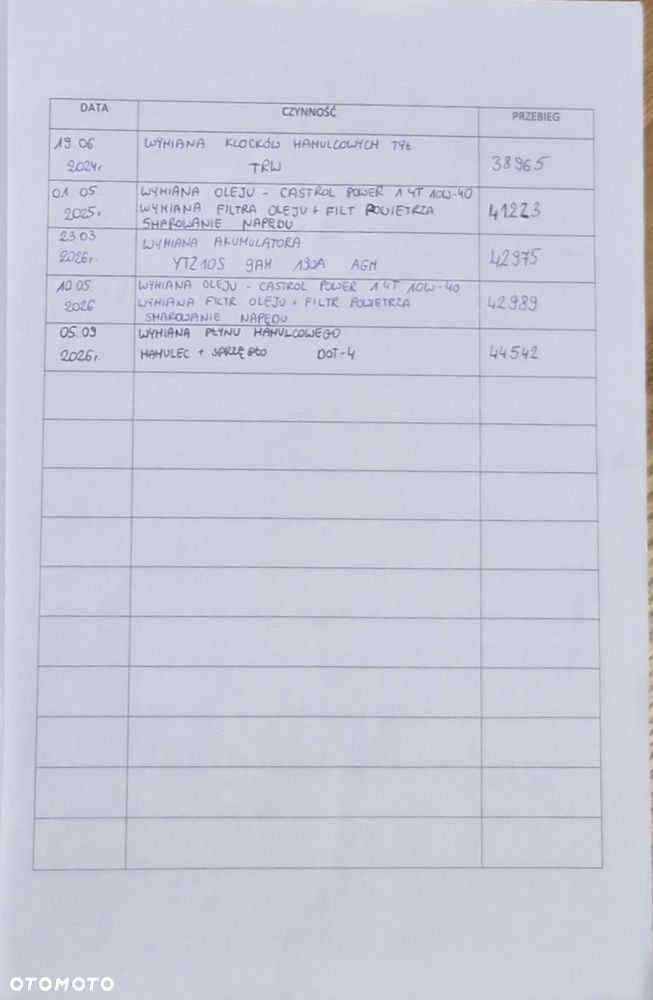 DATA CZYNNOŚĆ PRZEBIEG
19.06 WYMIANA KLOCKÓW HAMULCOWYCH TYŁ
2024r TRW 38965
01.05. WYMIANA OLEJU - CASTROL POWER 1 4T 10W-40
2025r. WYMIANA FILTRA OLEJU + FILT POWIETRZA 41223
SMAROWANIE NAPĘDU
23.03 WYMIANA AKUMULATORA
2026r. YTZ10S 9AH 190A AGM 42975
10.05. WYMIANA OLEJU - CASTROL POWER 1 4T 10W-40
2026 WYMIANA FILTR OLEJU + FILTR POWIETRZA 42989
SMAROWANIE NAPĘDU
05.09 WYMIANA PŁYNU HAMULCOWEGO
2026r. HAMULEC + SPRZĘGŁO DOT-4 44542
OTOMOTO